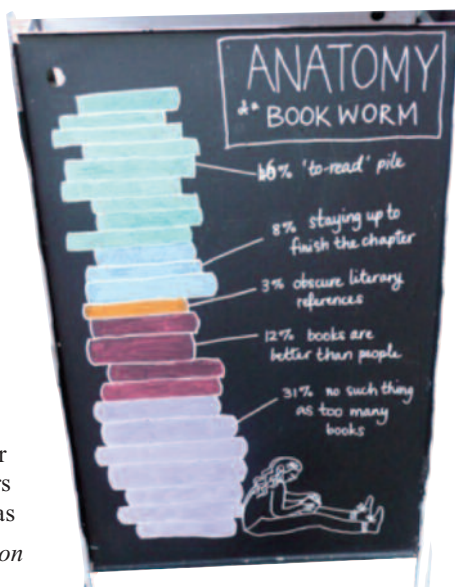 ANATOMY
of a
BOOK WORM
'to-read' pile
8% staying up to
finish the chapter
3% obscure literary
references
12% books are
better than people
31% no such thing
as too many
books
r
rs
as
on